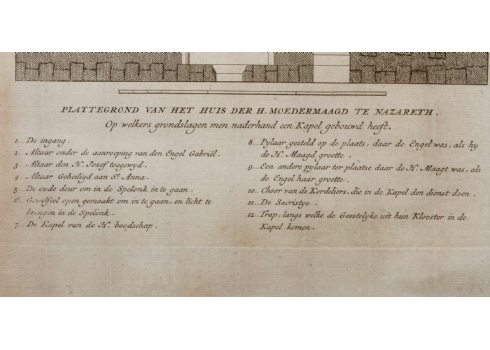 PLATTEGROND VAN HET HUIS DER H. MOEDERMAAGD TE NAZARETH.
Op welkers grondslagen men naderhand een Kapel gebouwd heeft.
1. De ingang.
2. Altaar onder de aanroeping van den Engel Gabriël.
3. Altaar den H. Josef toegewyd.
4. Altaar Geheiligd aan St. Anna.
5. De oude deur om in de Spelonk in te gaan.
6. open gemaakt om in te gaan, en licht te
brengen in de Spelonk.
7. De Kapel van de H. boodschap.
8. Pylaar gesteld op de plaats, daar de Engel was, als hy
de H. Maagd groette.
9. Een andere pylaar ter plaatse daar de H. Maagt was, als
de Engel haar groette.
10. Choor van de Kordeliers, die in de Kapel den dienst doen.
11. De Sacristye.
12. Trap, langs welke de Geestelyke uit hun Klooster in de
Kapel komen.